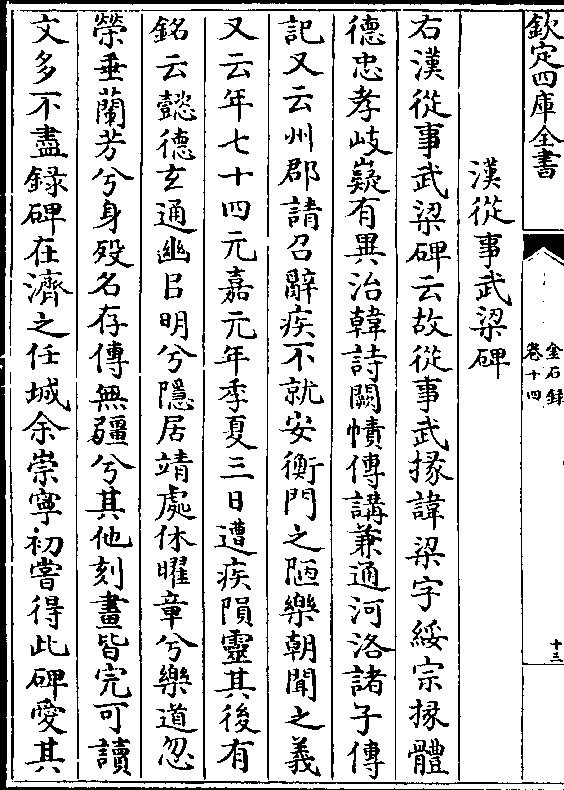 欽定四庫全書
金石錄
卷十四
十三
漢從事武梁碑
右漢從事武梁碑云故從事武掾諱梁字綏宗掾體
德忠孝岐嶷有異治韓詩闕幘傳講兼通河洛諸子傳
記又云州郡請召辭疾不就安衡門之陋樂朝聞之義
又云年七十四元嘉元年季夏三日遭疾隕靈其後有
銘云懿德玄通幽㠯明兮隱居靖處休曜章兮樂道忽
榮垂蘭芳兮身歿名存傳無疆兮其他刻畫皆完可讀
文多不盡錄碑在濟之任城余崇寧初嘗得此碑愛其